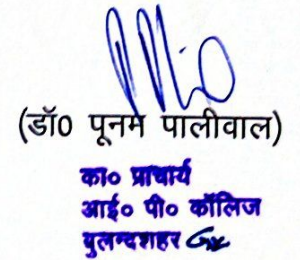 (डॉ0 पूनम पालीवाल)
का० प्राचार्य
आई० पी० कॉलिज
बुलन्दशहर